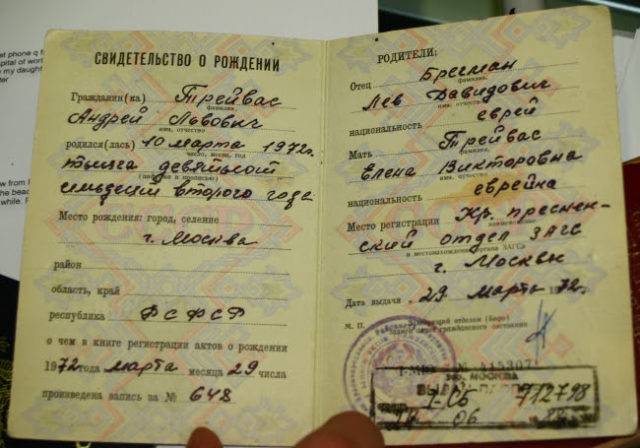 СВИДЕТЕЛЬСТВО О РОЖДЕНИИ
Гражданин(ка) Трейвас
фамилия,
Андрей Львович
имя, отчество
родился(лась) 10 марта 1972г.
число, месяц, год
тысяча девятьсот
(цифрами и прописью)
семьдесят второго года
Место рождения: город, селение
г. Москва
район
область, край
республика РСФСР
о чем в книге регистрации актов о рождении
1972 года марта месяца 29 числа
произведена запись за № 648
РОДИТЕЛИ:
Отец Брегман
фамилия,
Лев Давидович
имя, отчество
национальность еврей
Мать Трейвас
фамилия,
Елена Викторовна
имя, отчество
национальность еврейка
Место регистрации Кр. преснен-
наименование
ский отдел ЗАГС
и местонахождение органа ЗАГСа
г. Москвы
Дата выдачи 29 марта 1972г.
М. П. Заведующий отделом (бюро)
записи актов гражданского состояния
№
МОСКВА
I-СБ 712798
06
et phone q
pital of wor
my daugh
w from
the bea
while.